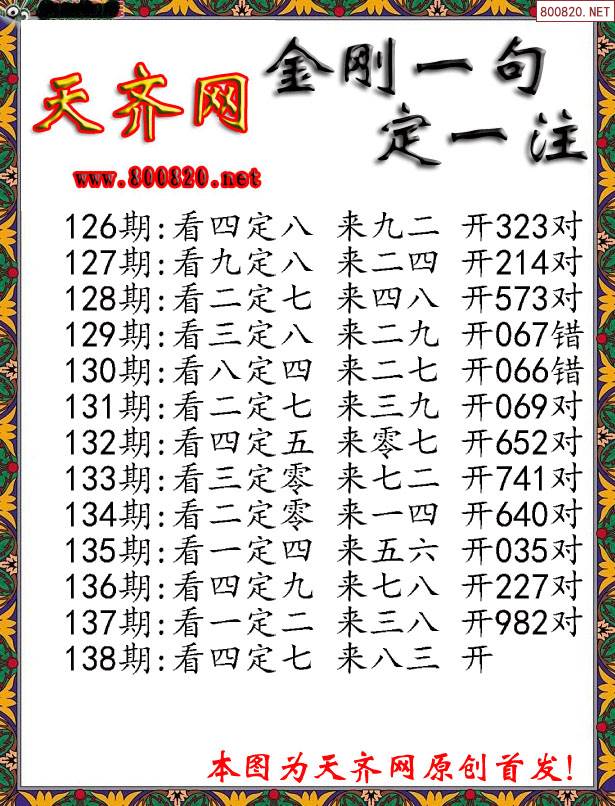 800820.NET
金刚一句
天齐网
定一注
www.800820.net
126期:看四定八 来九二 开323对
127期:看九定八 来二四 开214对
128期:看二定七 来四八 开573对
129期:看三定八 来二九 开067错
130期:看八定四 来二七 开066错
131期:看二定七 来三九 开069对
132期:看四定五 来零七 开652对
133期:看三定零 来七二 开741对
134期:看二定零 来一四 开640对
135期:看一定四 来五六 开035对
136期:看四定九 来七八 开227对
137期:看一定二 来三八 开982对
138期:看四定七 来八三 开
本图为天齐网原创首发!